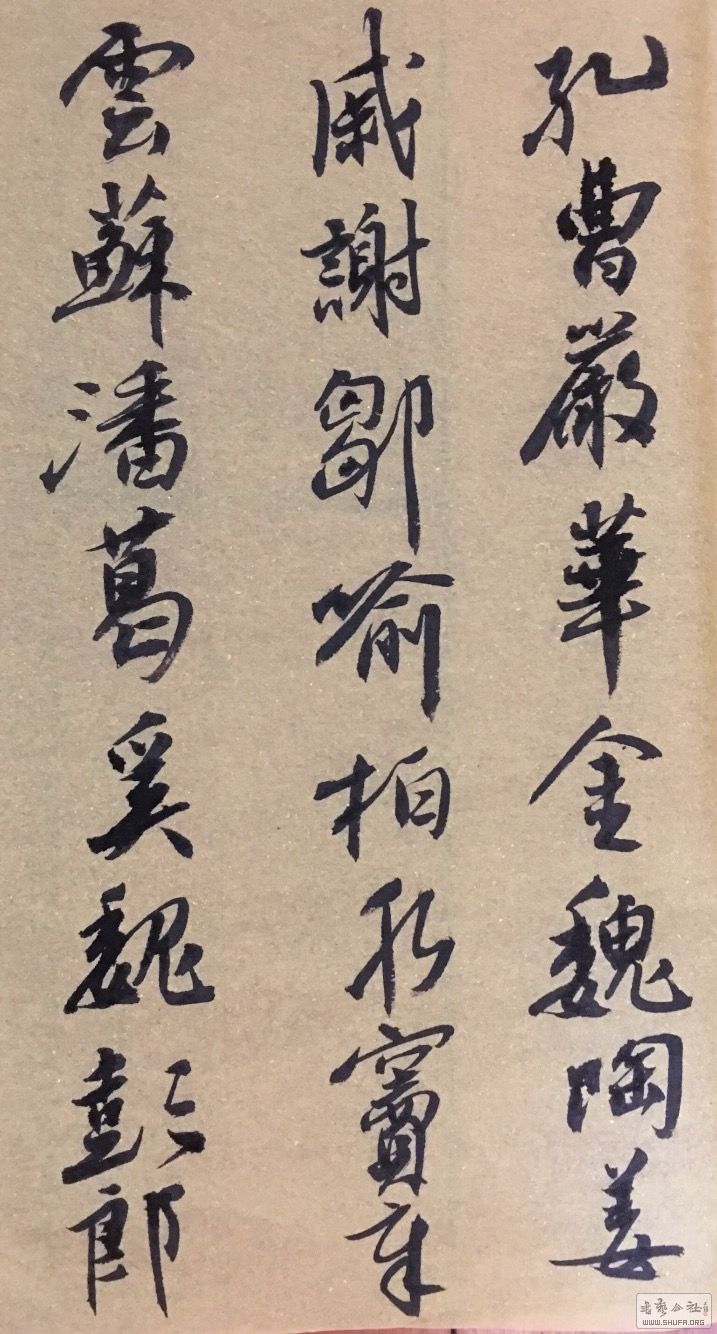 孔曹嚴華金魏陶姜
戚謝鄒喻柏水竇章
雲蘇潘葛奚魏彭郎
書藝公社
WWW.SHUFA.ORG